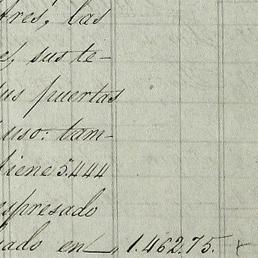 tres, las
sus te-
sus puertas
uso: tam-
tiene 5.444
expresado
ado en 1.462.75.